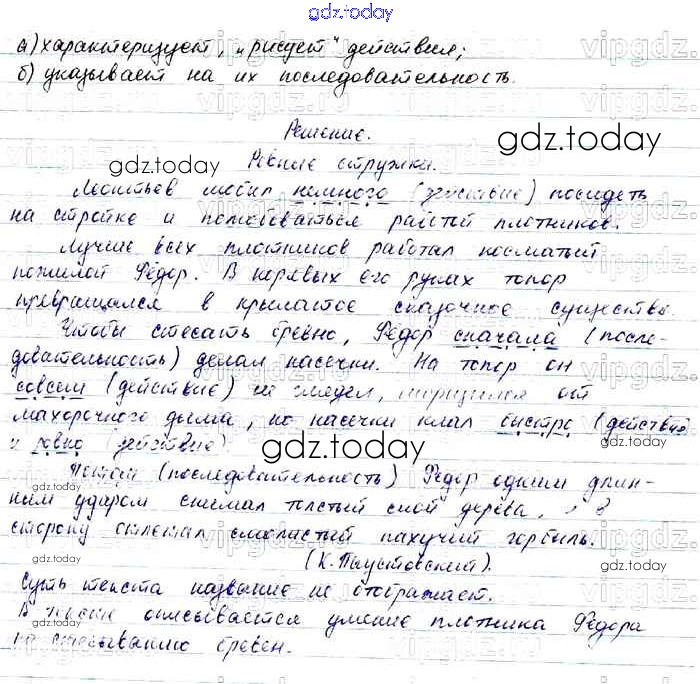 gdz.today
а) характеризует, „рисует" действия;
б) указывает на их последовательность.
Решение.
gdz.today
gdz.today
Ровные стружки.
Леонтьев любил немного (действие) посидеть
на стройке и полюбоваться работой плотников.
Лучше всех плотников работал косматый
пожилой Фёдор. В корявых его руках топор
превращался в крылатое сказочное существо.
Чтобы стесать бревно, Фёдор сначала (после-
довательность) делал насечки. На топор он
совсем (действие) не глядел, морщился от
махорочного дыма, но насечки клал быстро (действие)
и ровно (действие).
gdz.today
Потом (последовательность) Фёдор одним длин-
ным ударом снимал толстый слой дерева, и в
сторону отлетал смолистый пахучий горбыль.
gdz.today
gdz.today
(К. Паустовский).
Суть текста название не отображает.
В тексте описывается умение плотника Фёдора
по стёсыванию бревен.
gdz.today
gdz.today